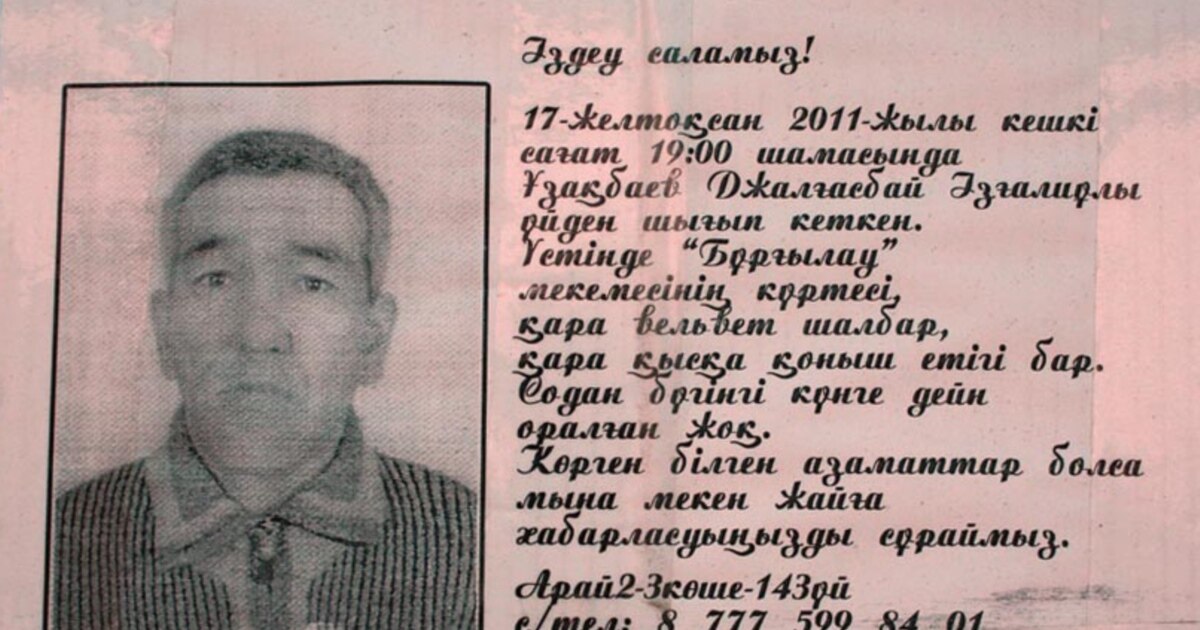 Іздеу саламыз!
17-желтоқсан 2011-жылы кешкі
сағат 19:00 шамасында
Ұзақбаев Джалғасбай Ізғалиұлы
үйден шығып кеткен.
Үстінде "Бұрғылау"
мекемесінің күртесі,
қара вельвет шалбар,
қара қысқа қоныш етігі бар.
Содан бүгінгі күнге дейн
оралған жоқ.
Көрген білген азаматтар болса
мына мекен жайға
хабарласуыңызды сұраймыз.
Арай2-3көше-143үй
с/тел: 8 777 599 84 01